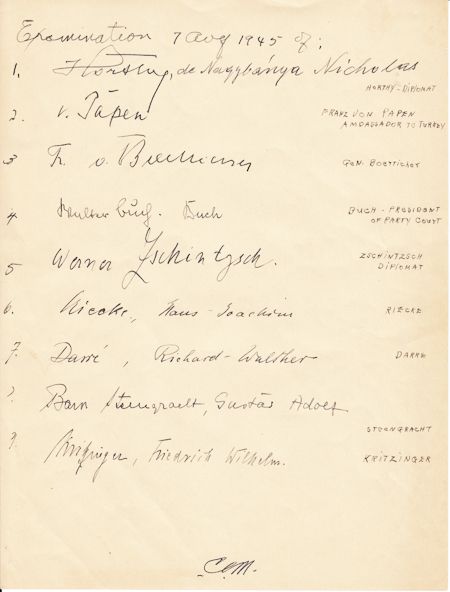 Examination 7 Aug 1945 of:
1. Horthy, de Nagybánya Nicholas
HORTHY - DIPLOMAT
2. v. Papen
FRANZ VON PAPEN
AMBASSADOR TO TURKEY
3 v.
GEN. BOETTICHER
4 Walter Buch. Buch
BUCH - PRESIDENT
OF PARTY COURT
5 Werner Zschintzsch.
ZSCHINTZSCH
DIPLOMAT
6. Riecke, Hans-Joachim
RIECKE
7. Darré, Richard-Walther
DARRE
Baron Steengracht, Gustav Adolf
STEENGRACHT
9. Kritzinger, Friedrich Wilhelm.
KRITZINGER